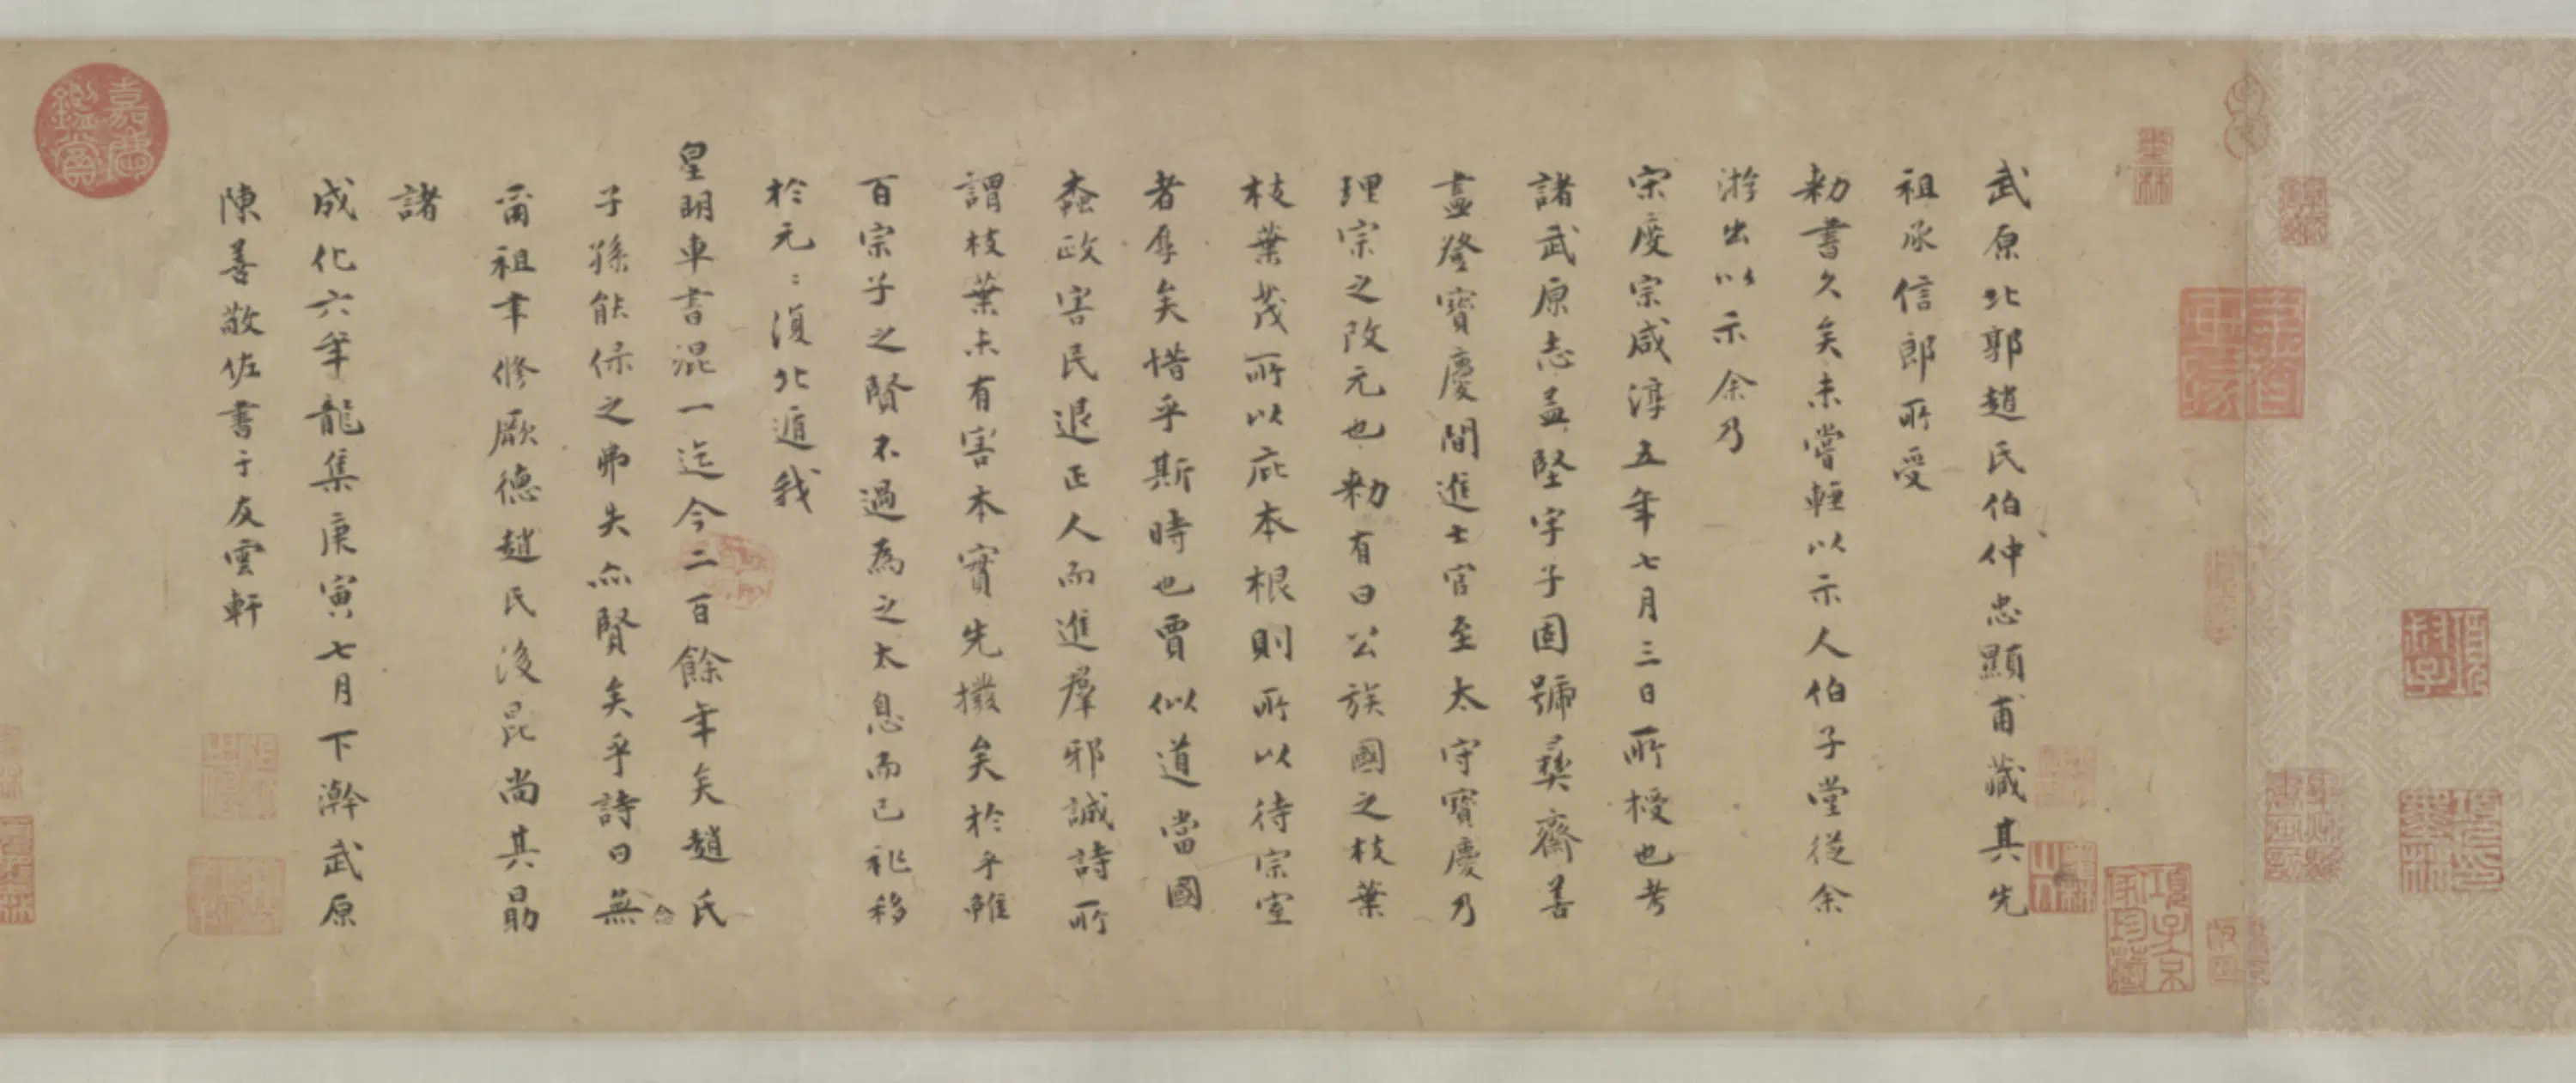 武原北郭趙氏伯仲忠顯甫藏其先
祖承信郎所受
勅書久矣未嘗輕以示人伯子堂從余
游出以示余乃
宗度宗咸淳五年七月三日所授也考
諸武原志孟堅字子固號彞齋善
畫登寶慶間進士官至太守寶慶乃
理宗之改元也勅有曰公族國之枝葉
枝葉茂所以庇本根則所以待宗室
者厚矣惜乎斯時也賈似道當國
蠹政害民退正人而進羣邪誠詩所
謂枝葉未有害本實先撥矣於乎雖
百宗子之賢不過為之太息而已祚移
於元〻復北遁我
皇明車書混一迄今二百餘年矣趙氏
子孫能保之弗失亦賢矣乎詩曰無念
爾祖聿修厥德趙氏後昆尚其勗
諸
成化六年龍集庚寅七月下澣武原
陳善敬佐書于友雲軒
嘉慶鑑賞
墨林
項子京家珍藏
項叔子
項元汴印
墨林山人